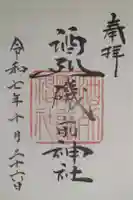 奉拝
酒列磯前神社
令和七年十月二十六日